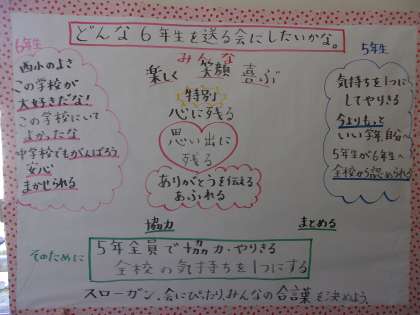 どんな6年生を送る会にしたいかな。
6年生
西小のよさ
この学校が
大好きだな!
この学校にいて
よかったな
中学校でもがんばろう
安心
まかせられる
みんな
楽しく 笑顔 喜ぶ
特別
心に残る
思い出に
残る
ありがとうを伝える
あふれる
5年生
気持ちを1つに
してやりきる
今よりもっと
いい学年
5年生が6年生へ
全校から認め
協力 まとめる
そのために
5年全員で協力・やりきる
全校の気持ちを1つにする
スローガン、会にぴったり、みんなの合言葉を決めよう。